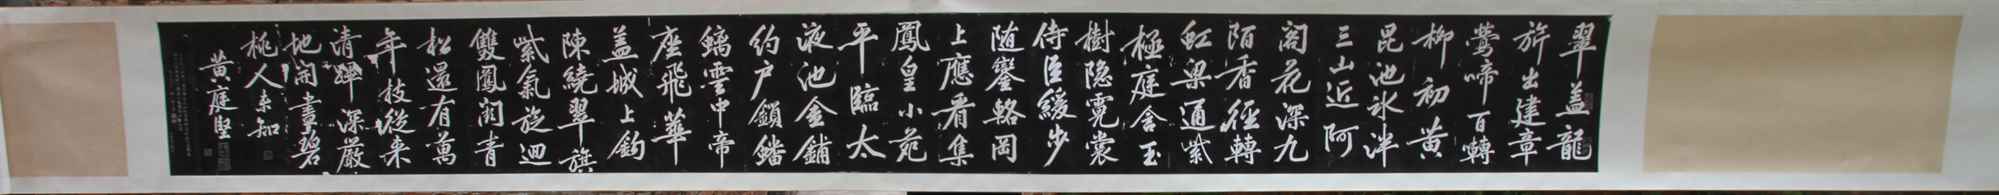 翠盖龍
旂出建章
鶯啼百轉
柳初黄
昆池冰泮
三山近阿
阁花深九
陌香径轉
虹梁通紫
極庭含玉
樹隐霓裳
侍臣緩步
随鑾輅岡
上應看集
鳳皇小苑
平臨太
液池金鋪
约户鎖蟠
螭雲中帝
座飛華
盖城上鈎
陳繞翠旗
紫氣旋迴
雙鳳闕青
松還有萬
年枝從来
清蹕深嚴
地開畫碧
桃人未知
黄庭堅